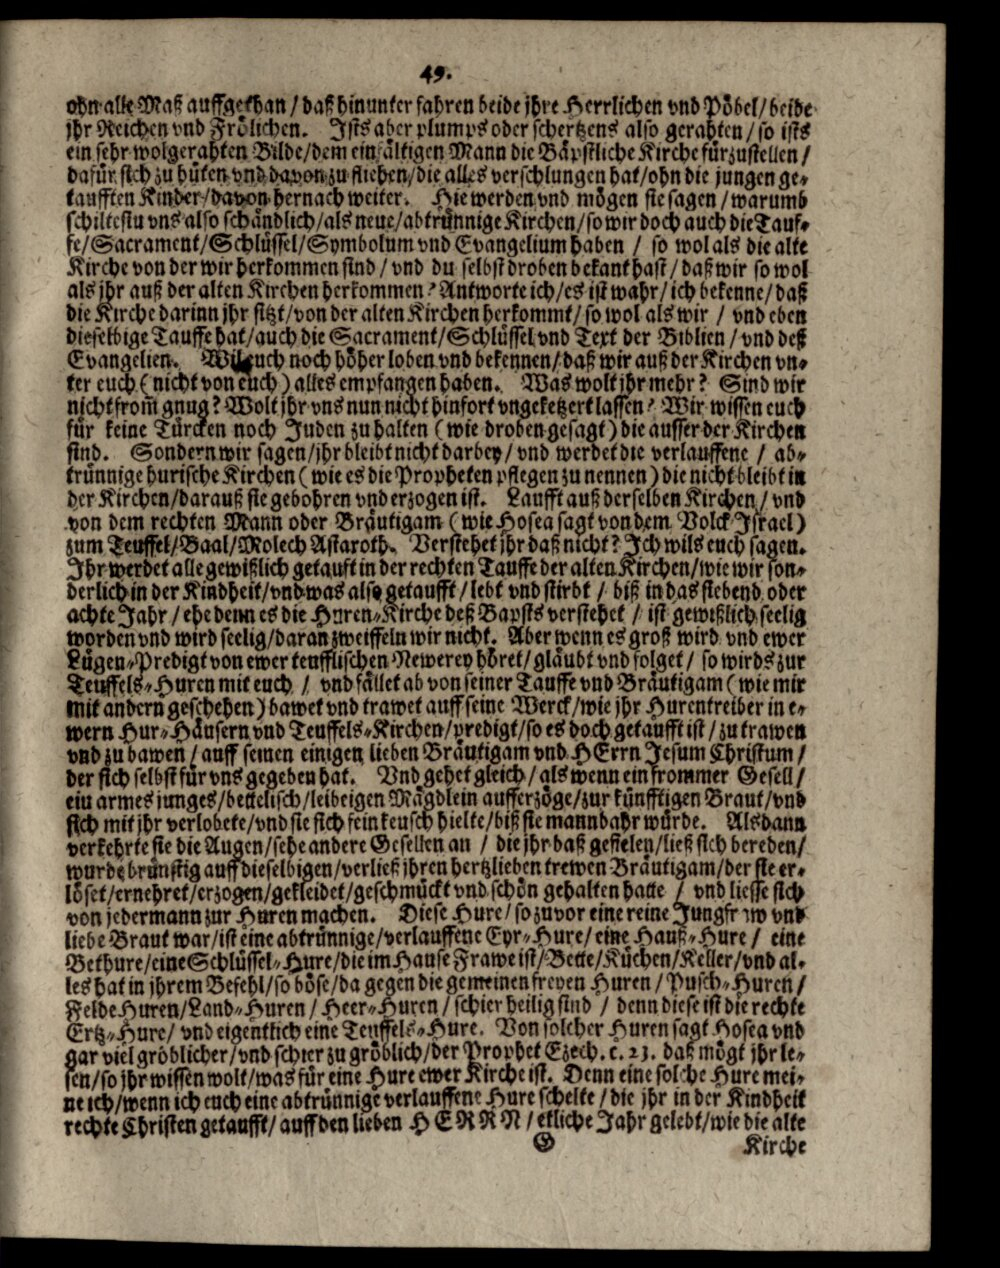 49.
ohn alle Maß auffgethan / daß hinunter fahren beide jhre Herrlichen vnd Pöbel / beide
jhr Reichen vnd Frölichen. Ists aber plumps oder schertzens also gerahten / so ists
ein sehr wolgerahten Bilde / dem einfältigen Mann die Bäpstliche Kirche fürzustellen /
dafür sich zu hüten vnd davon zu fliehen / die alles verschlungen hat / ohn die jungen ge-
taufften Kinder / davon hernach weiter. Hie werden vnd mögen sie sagen / warumb
schiltestu vns also schändlich / als neue / abtrünnige Kirchen / so wir doch auch die Tauf-
fe / Sacrament / Schlüssel / Symbolum vnd Evangelium haben / so wol als die alte
Kirche von der wir herkommen sind / vnd du selbst droben bekant hast / daß wir so wol
als jhr auß der alten Kirchen herkommen? Antworte ich / es ist wahr / ich bekenne / daß
die Kirche darinn jhr sitzt / von der alten Kirchen herkommt / so wol als wir / vnd eben
dieselbige Tauffe hat / auch die Sacrament / Schlüssel vnd Text der Biblien / vnd deß
Evangelien. Wil euch noch höher loben vnd bekennen / daß wir auß der Kirchen vn-
ter euch (nicht von euch) alles empfangen haben. Was wolt jhr mehr? Sind wir
nicht from̃ gnug? Wolt jhr vns nun nicht hinfort vngeketzert lassen? Wir wissen euch
für keine Türcken noch Juden zu halten (wie droben gesagt) die ausser der Kirchen
sind. Sondern wir sagen / jhr bleibt nicht darbey / vnd werdet die verlauffene / ab-
trünnige hurische Kirchen (wie es die Propheten pflegen zu nennen) die nicht bleibt in
der Kirchen / darauß sie gebohren vnd erzogen ist. Laufft auß derselben Kirchen / vnd
von dem rechten Mann oder Bräutigam (wie Hosea sagt von dem Volck Jsrael)
zum Teuffel / Baal / Molech Astaroth. Verstehet jhr daß nicht? Jch wils euch sagen.
Jhr werdet alle gewißlich getauft in der rechten Tauffe der alten Kirchen / wie wir son-
derlich in der Kindheit / vnd was also getaufft / lebt vnd stirbt / biß in das siebend oder
achte Jahr / ehe denn es die Huren-Kirche deß Bapsts verstehet / ist gewißlich seelig
worden vnd wird seelig / daran zweiffeln wir nicht. Aber wenn es groß wird vnd ewer
Lügen-Predigt von ewer teufflischen Newerey höret / gläubt vnd folget / so wirds zur
Teuffels-Huren mit euch / vnd fället ab von seiner Tauffe vnd Bräutigam (wie mir
mit andern geschehen) bawet vnd trawet auff seine Werck / wie jhr Hurentreiber in e-
wern Hur-Häusern vnd Teuffels-Kirchen / predigt / so es doch getaufft ist / zu trawen
vnd zu bawen / auff seinen einigen lieben Bräutigam vnd HErrn Jesum Christum /
der sich selbst für vns gegeben hat. Vnd gehet gleich / als wenn ein frommer Gesell /
ein armes junges / bettelisch / leibeigen Mägdlein aufferzöge / zur künfftigen Braut / vnd
sich mit jhr verlobete / vnd sie sich fein keusch hielte / biß sie mannbahr würde. Alsdann
verkehrte sie die Augen / sehe andere Gesellen an / die jhr baß gefielen / ließ sich bereden /
wurde brünstig auff dieselbigen / verließ jhren hertzlieben trewen Bräutigam / der sie er-
löset / ernehret / erzogen / gekleidet / geschmückt vnd schön gehalten hatte / vnd liesse sich
von jedermann zur Huren machen. Diese Hure / so zuvor eine reine Jungfraw vnd
liebe Braut war / ist eine abtrünnige / verlauffene Eyr-Hure / eine Hauß-Hure / eine
Bethure / eine Schlüssel-Hure / die im Hause Frawe ist / Bette / Küchen / Keller / vnd al-
les hat in jhrem Befehl / so böse / da gegen die gemeinen freyen Huren / Pusch-Huren /
Felde Huren / Land-Huren / Heer-Huren / schier heilig sind / denn diese ist die rechte
Ertz-Hure / vnd eigentlich eine Teuffels-Hure. Von solcher Huren sagt Hosea vnd
gar viel gröblicher / vnd schier zu gröblich / der Prophet Ezech. c. 23. daß mögt jhr le-
sen / so jhr wissen wolt / was für eine Hure ewer Kirche ist. Denn eine solche Hure mei-
ne ich / wenn ich euch eine abtrünnige verlauffene Hure schelte / die jhr in der Kindheit
rechte Christen getaufft / auff den lieben HERRN / etliche Jahr gelebt / wie die alte
G Kirche